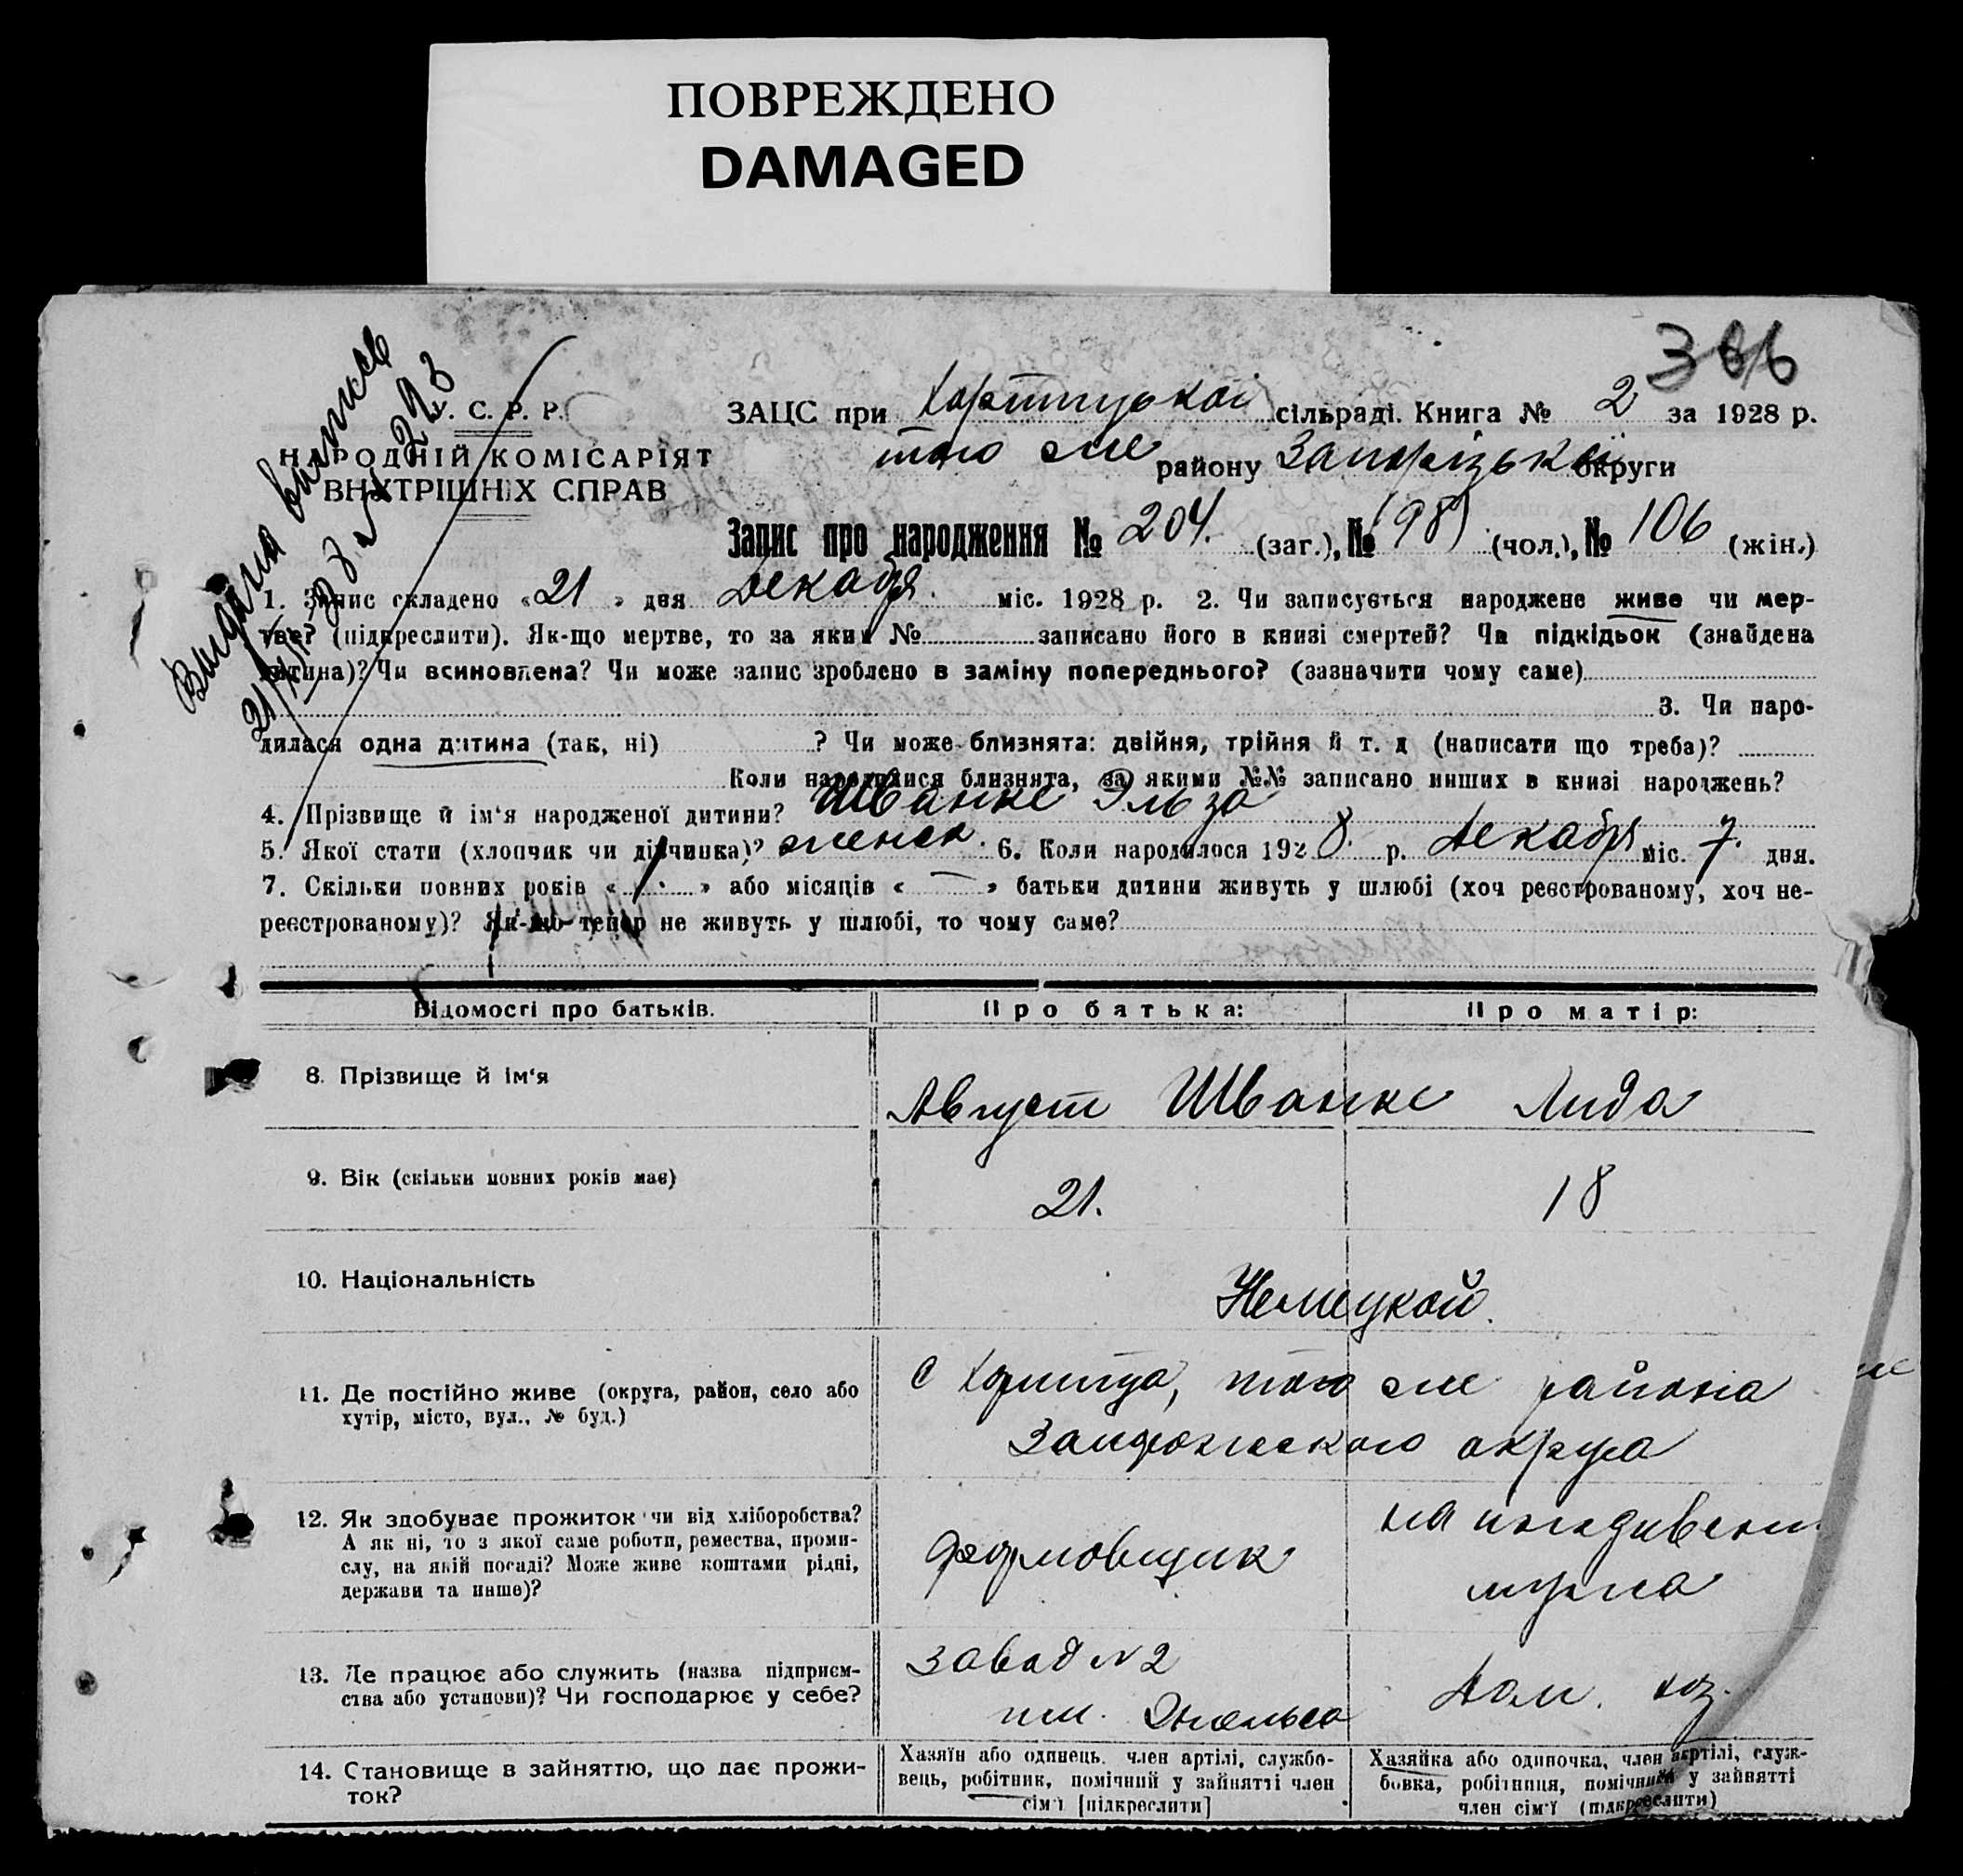 ПОВРЕЖДЕНО
DAMAGED
366
Видана выпись
У. С. Р. Р.
НАРОДНІЙ КОМІСАРІЯТ
ВНУТРІШНІХ СПРАВ
ЗАЦС при Хортицької сільраді. Книга № 2 за 1928 р.
того же району Запорізької округи
Запис про народження № 204. (заг.), № 98 (чол.), № 106 (жін.)
1. Запис складено «21» дня Декабря. міс. 1928 р. 2. Чи записується народжене живе чи мер-
тве? (підкреслити). Як-що мертве, то за яким № записано його в книзі смертей? Чи підкідьок (знайдена
дитина)? Чи всиновлена? Чи може запис зроблено в заміну попереднього? (зазначити чому саме)
3. Чи наро-
дилася одна дитина (так, ні) ? Чи може близнята: двійня, трійня й т. д (написати що треба)?
Коли народилися близнята, за якими №№ записано инших в книзі народжень?
4. Прізвище й ім‘я народженої дитини? Шванке Эльза
5. Якої стати (хлопчик чи дівчинка)? женск. 6. Коли народилося 1928. р. Декабря міс. 7. дня.
7. Скільки повних років «1.» або місяців «—» батьки дитини живуть у шлюбі (хоч реєстрованому, хоч не-
реєстрованому)? Як-що тепер не живуть у шлюбі, то чому саме?
Відомості про батьків. Про батька: Про матір:
8. Прізвище й ім‘я Август Шванке Лида
9. Вік (скільки повних років має) 21. 18
10. Національність Немецкой.
11. Де постійно живе (округа, район, село або
хутір, місто, вул., № буд.)
с Хортица, того же района
Запорожского округа
12. Як здобуває прожиток чи від хліборобства?
А як ні, то з якої саме роботи, ремества, проми-
слу, на якій посаді? Може живе коштами рідні,
держави та инше)?
формовщик
на иждивении
мужа
13. Де працює або служить (назва підприєм-
ства або установи)? Чи господарює у себе?
завод №2
им. Энгельса
Дом. хоз.
14. Становище в зайняттю, що дає прожи-
ток?
Хазяїн або одинець. член артілі, службо-
вець, робітник, помічний у зайнятті член
сім‘ї [підкреслити]
Хазяйка або одиночка, член артілі, служ-
бовка, робітниця, помічний у зайнятті
член сім‘ї (підкреслити)